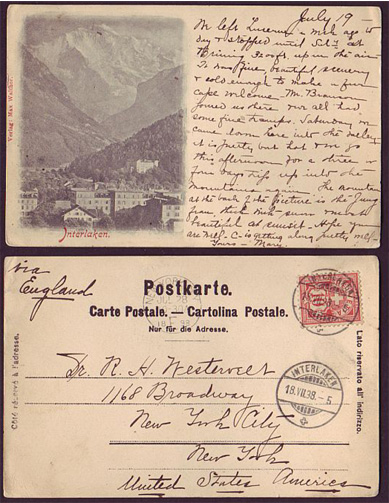 July 19 –
We left Lucerne a week ago to
day & stopped until Sat. at
Brünig 3000 ft. up in the air
It was fine, beautiful scenery
& cold enough to make a fur
cape welcome. Mr. Brown
joined us there & we all had
some fine tramps. Saturday we
came down here into the valley
it is pretty, but hot & we go
this afternoon for a three or
four days trip up into the
mountains again. The mountain
at the back of the picture is the Jung
frau thick with snow & most
beautiful at sunset. Hope you
are well – C– is getting along pretty well
Yours – Mary.
Verlag: Max Walther.
Interlaken.
via
England
Postkarte.
Carte Postale. — Cartolina Postale.
Nur für die Adresse.
Côté réservé à l'adresse.
Lato riservato all' indirizzo.
10
INTERLAKEN
19.VII.98.– 5
Dr. R. H. Westervelt
1168 Broadway
New York City
New York
United States America